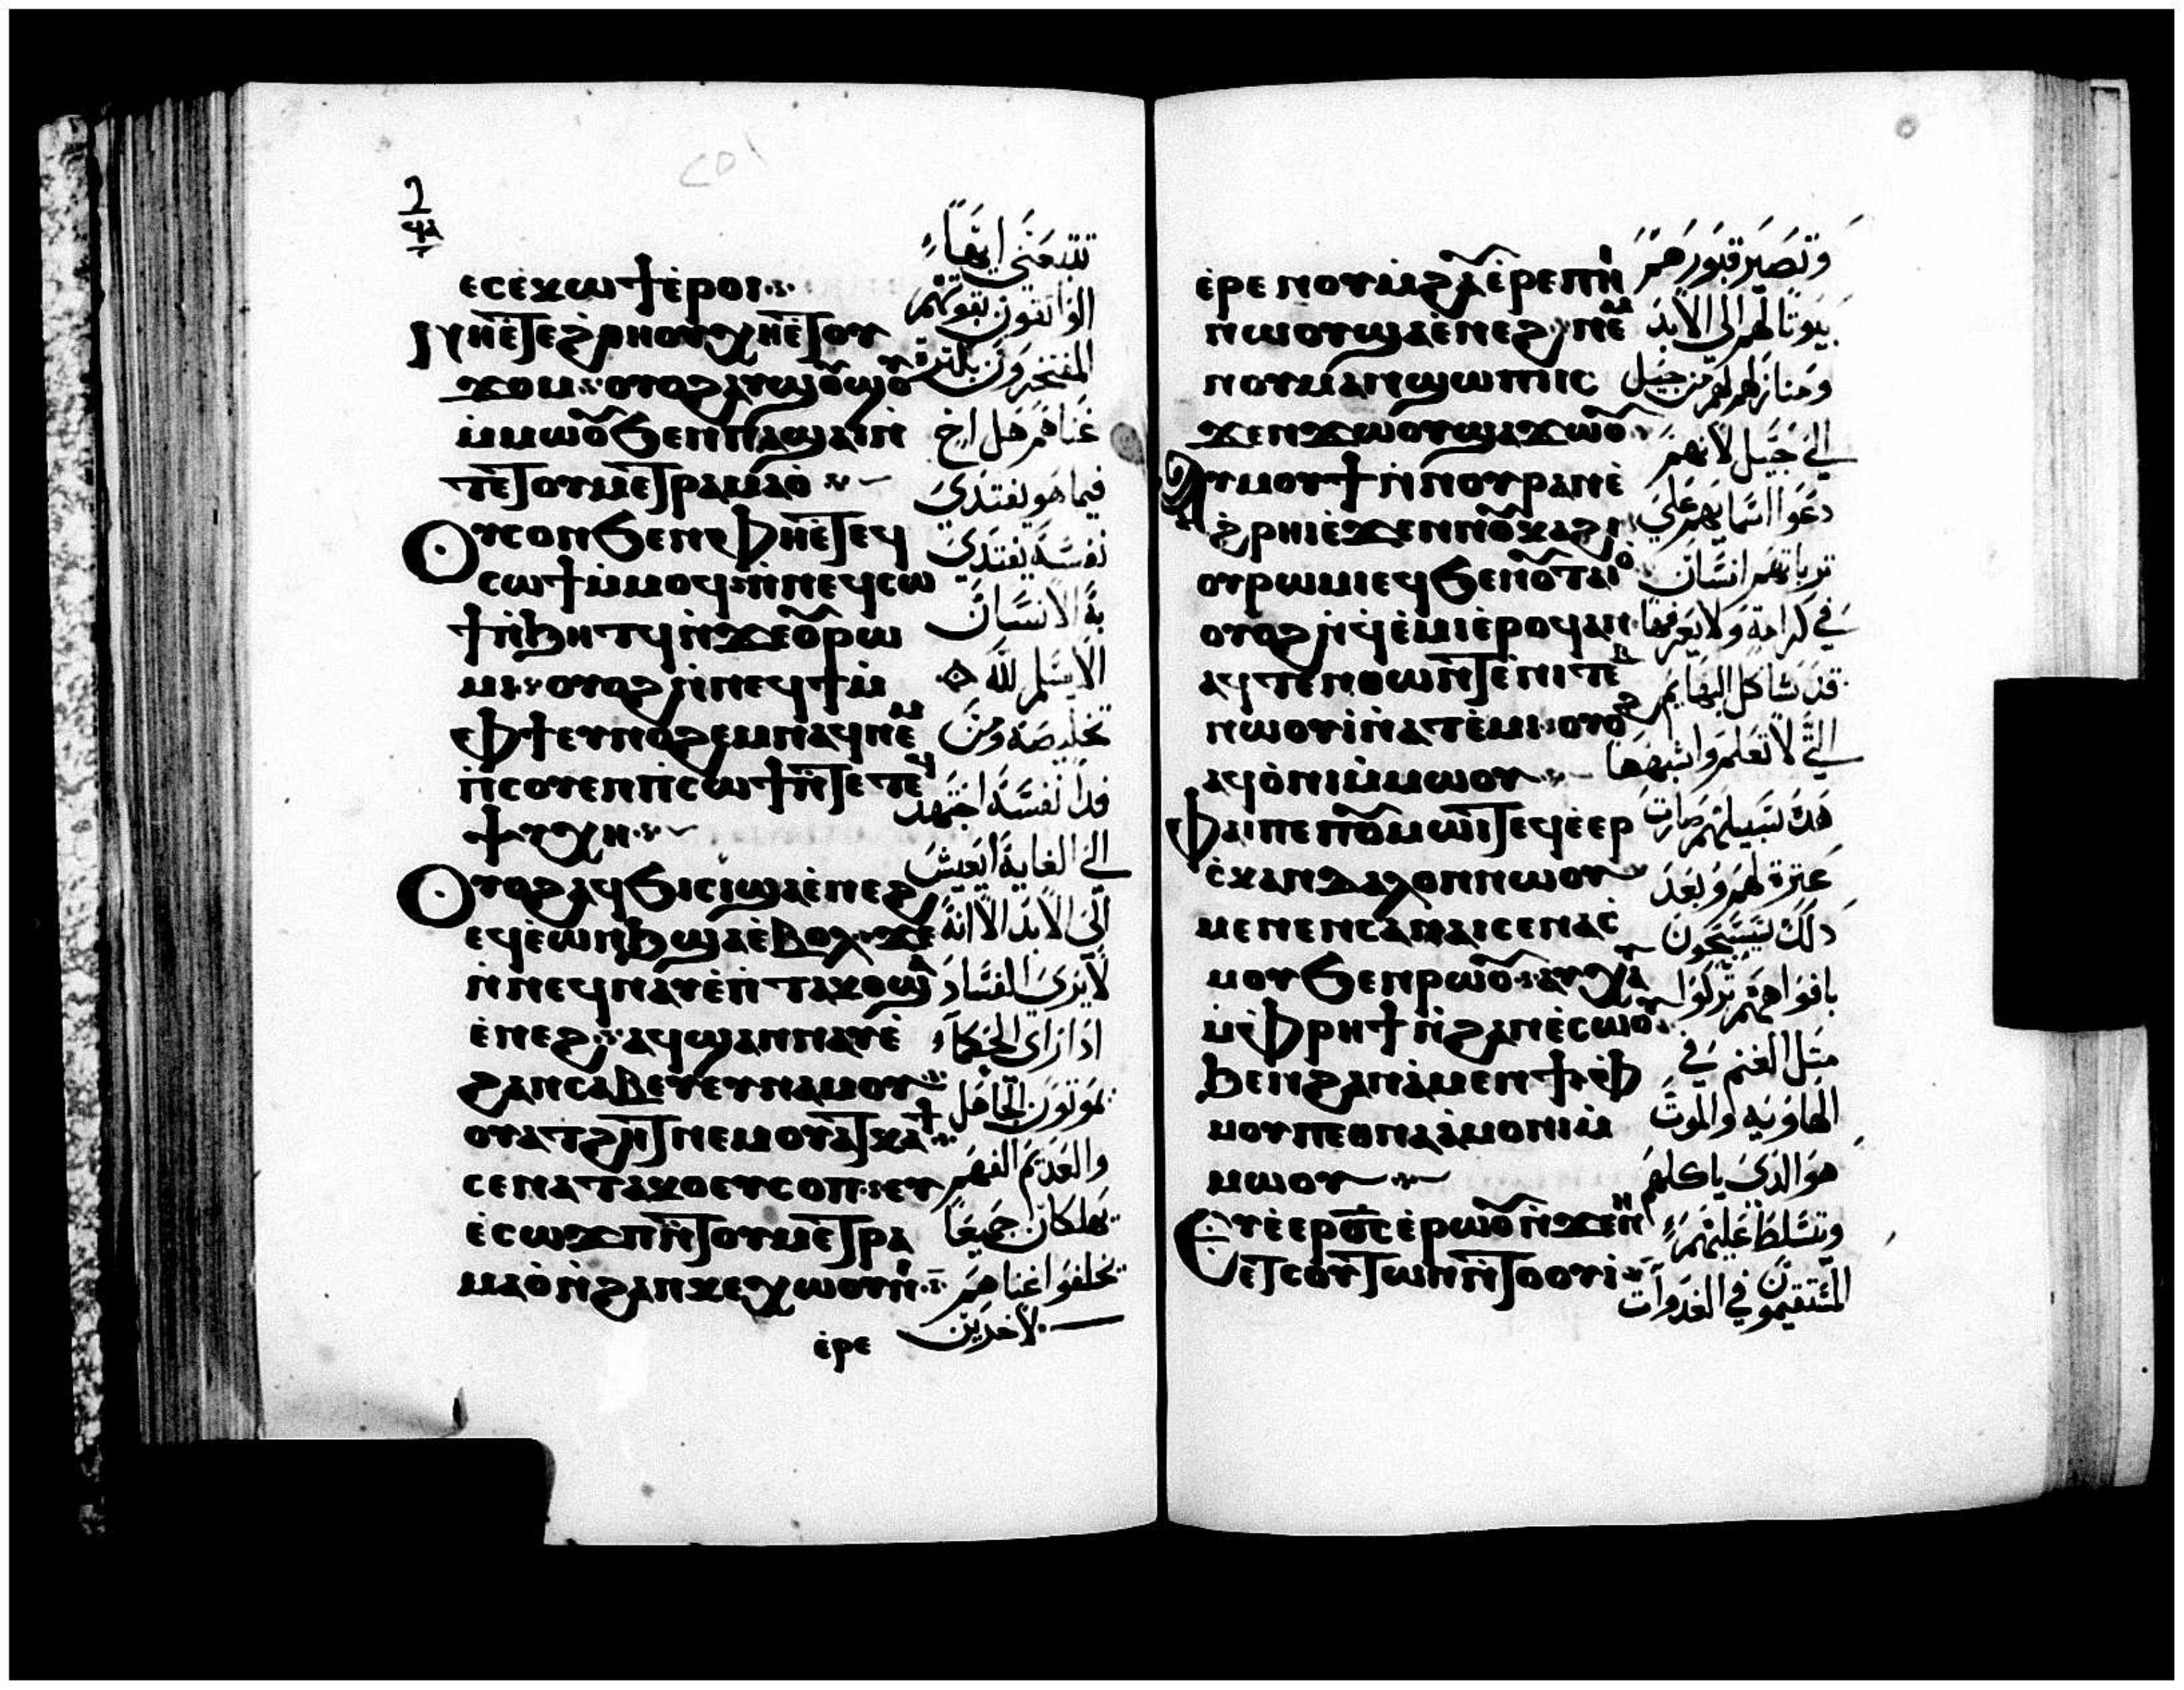 ⲉⲥⲉ̀ⲭⲱϯⲉ̀ⲣⲟⲓ
ⲥⲱϯⲙ̀ⲙⲟϥⲛ̀ⲛⲉϥⲥⲱ
ϯⲛ̀ϧⲏⲧϥⲛ̀ϫⲉⲟⲩⲣⲱ
ⲙⲓ ⲟⲩⲟϩⲛ̀ⲛⲉϥϯⲙ̀
ⲯⲩⲭⲏ
ⲟⲩⲟϩⲁϥϭⲓⲥⲓϣⲁⲉ̀ⲛⲉϩ
ⲉϥⲉ̀ⲱⲛϧϣⲁⲉ̀ⲃⲟⲗ ϫⲉ
ⲉ̀ⲛⲉϩ ⲁϥϣⲁⲛⲛⲁⲩⲉ̀
ϩⲁⲛⲥⲁⲃⲉⲩⲉⲩⲛⲁⲙⲟⲩ
ⲥⲉⲛⲁⲧⲁⲕⲟⲉⲩⲥⲟⲡ ⲉⲩ
ⲉ̀ⲥⲱϫⲡⲛ̀ⲧⲟⲩⲙⲉⲧⲣⲁ
ⲙⲁⲟ̀ⲛ̀ϩⲁⲛⲕⲉⲭⲱⲟⲩⲛⲓ
ⲉ̀ⲣⲉ
تتبعني ايها
الواثقون بقوتهم
المفتخرون بكثرة
غناهم هل اخ
فيما هو يفتدي
نفسه يفتدي
به الانسان
الا يسلم لله
تخليصه ومن
فدا نفسه اجتهد
الى الغاية ايعيش
الى الابد الا انه
لا يرى الفساد
اذا راى الحكماء
يموتون الجاهل
والعديم الفهم
يهلكان جميعا
تخلفوا غناهم
لاخرين
ⲛⲱⲟⲩϣⲁⲉ̀ⲛⲉϩ ⲛⲉⲙ
ⲛⲟⲩⲙⲁⲛϣⲱⲡⲓⲓⲥ
ϫⲉⲛϫⲱⲟⲩϣⲁϫⲱⲟⲩ
ⲁⲩⲙⲟⲩϯⲛ̀ⲛⲟⲩⲣⲁⲛⲉ̀
ϩ̀ⲣⲏⲓⲉ̀ϫⲉⲛⲛⲟⲩⲕⲁϩⲓ
ⲟⲩⲣⲱⲙⲓⲉϥϧⲉⲛⲟⲩⲧⲁⲓⲟ
ⲟⲩⲟϩⲛ̀ϥⲉ̀ⲙⲓⲉ̀ⲣⲟϥⲁⲛ
ⲁϥⲧⲉⲛⲑⲱⲛⲧⲉ̀ⲛⲓⲧⲉⲃ
ⲛⲱⲟⲩⲓ̀ⲛ̀ⲁⲧⲉ̀ⲙⲓ ⲟⲩⲟϩ
ⲁϥⲟ̀ⲛⲓⲙ̀ⲙⲱⲟⲩ
ⲫⲁⲓⲡⲉⲡⲟⲩⲙⲱⲓⲧⲉϥⲉ̀ⲉⲣ
ⲥ̀ⲕⲁⲛⲇⲁⲗⲟⲛⲛⲱⲟⲩ
ⲙⲉⲛⲉⲛⲥⲁⲛⲁⲓⲥⲉⲛⲁⲥ̀
ⲙⲟⲩϧⲉⲛⲣⲱⲟⲩ ⲁⲩⲭⲁⲩ
ⲙ̀ⲫⲣⲏϯⲛ̀ϩⲁⲛⲉ̀ⲥⲱⲟⲩ
ϧⲉⲛϩⲁⲛⲁ̀ⲙⲉⲛϯ ⲫ
ⲙⲟⲩⲡⲉⲑⲛⲁⲁ̀ⲙⲟⲛⲓⲙ̀
ⲙⲱⲟⲩ
ⲉⲩⲉ̀ⲉⲣⲟ̅ⲥ̅ⲉ̀ⲣⲱⲟⲩⲛ̀ϫⲉⲛⲏ
ⲉⲧⲥⲟⲩⲧⲱⲛⲛ̀ⲧⲟⲟⲩⲓ̀
وتصير قبورهم
بيوتا لهم الى الابد
ومنازلهم من جيل
الى جيل لانهم
دعوا اسمايهم على
ترباتهم انسان
في كرامة ولا يعرفها
قد شاكل البهايم
التي لا تعلم واشبهها
هذه سبيلهم صارت
عثرة لهم وبعد
ذلك يسبحون
بافواههم تركوا
مثل الغنم في
الهاوية والموت
هو الذي ياكلهم
ويتسلط عليهم
المستقيمون في الغدوات